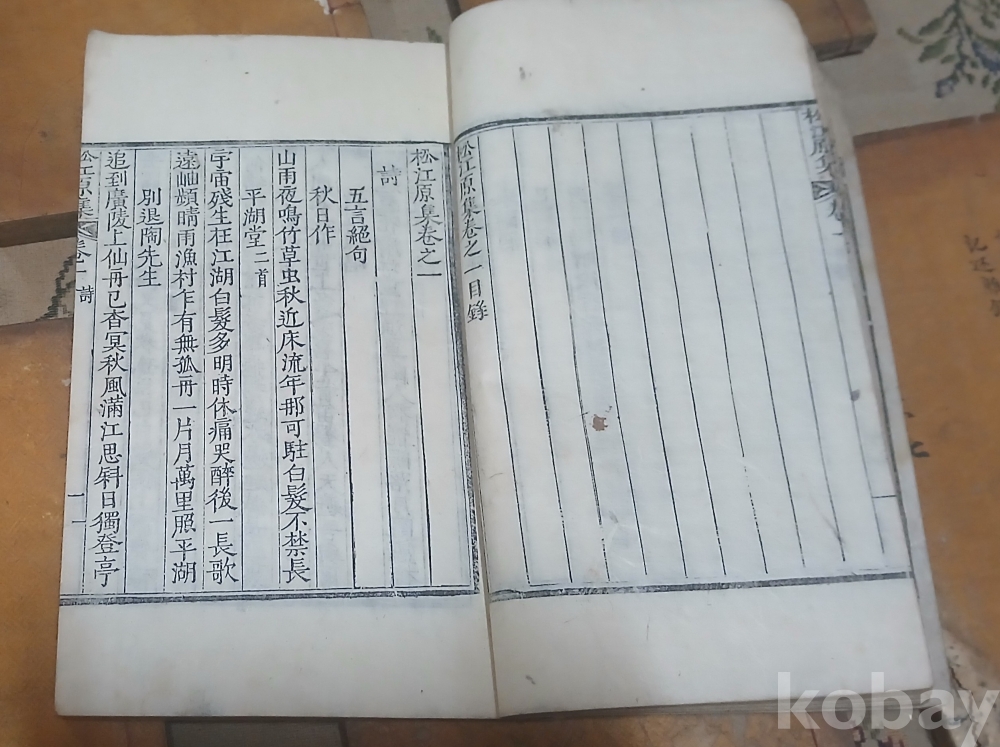 松江原集卷之一目錄
松江原集卷之一
詩
五言絕句
秋日作
山雨夜鳴竹草虫秋近床流年那可駐白髮不禁長
平湖堂二首
宇宙殘生在江湖白髮多明時休痛哭醉後一長歌
遠岫頻晴雨漁村乍有無孤舟一片月萬里照平湖
別退陶先生
追到廣陵上仙舟已杳冥秋風滿江思斜日獨登亭
松江原集 卷一 詩 一
kobay